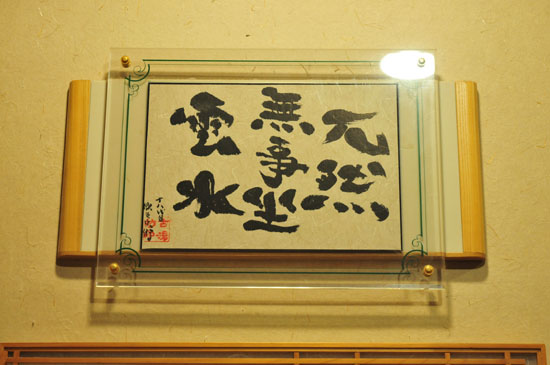 兀然
無事坐
雲水